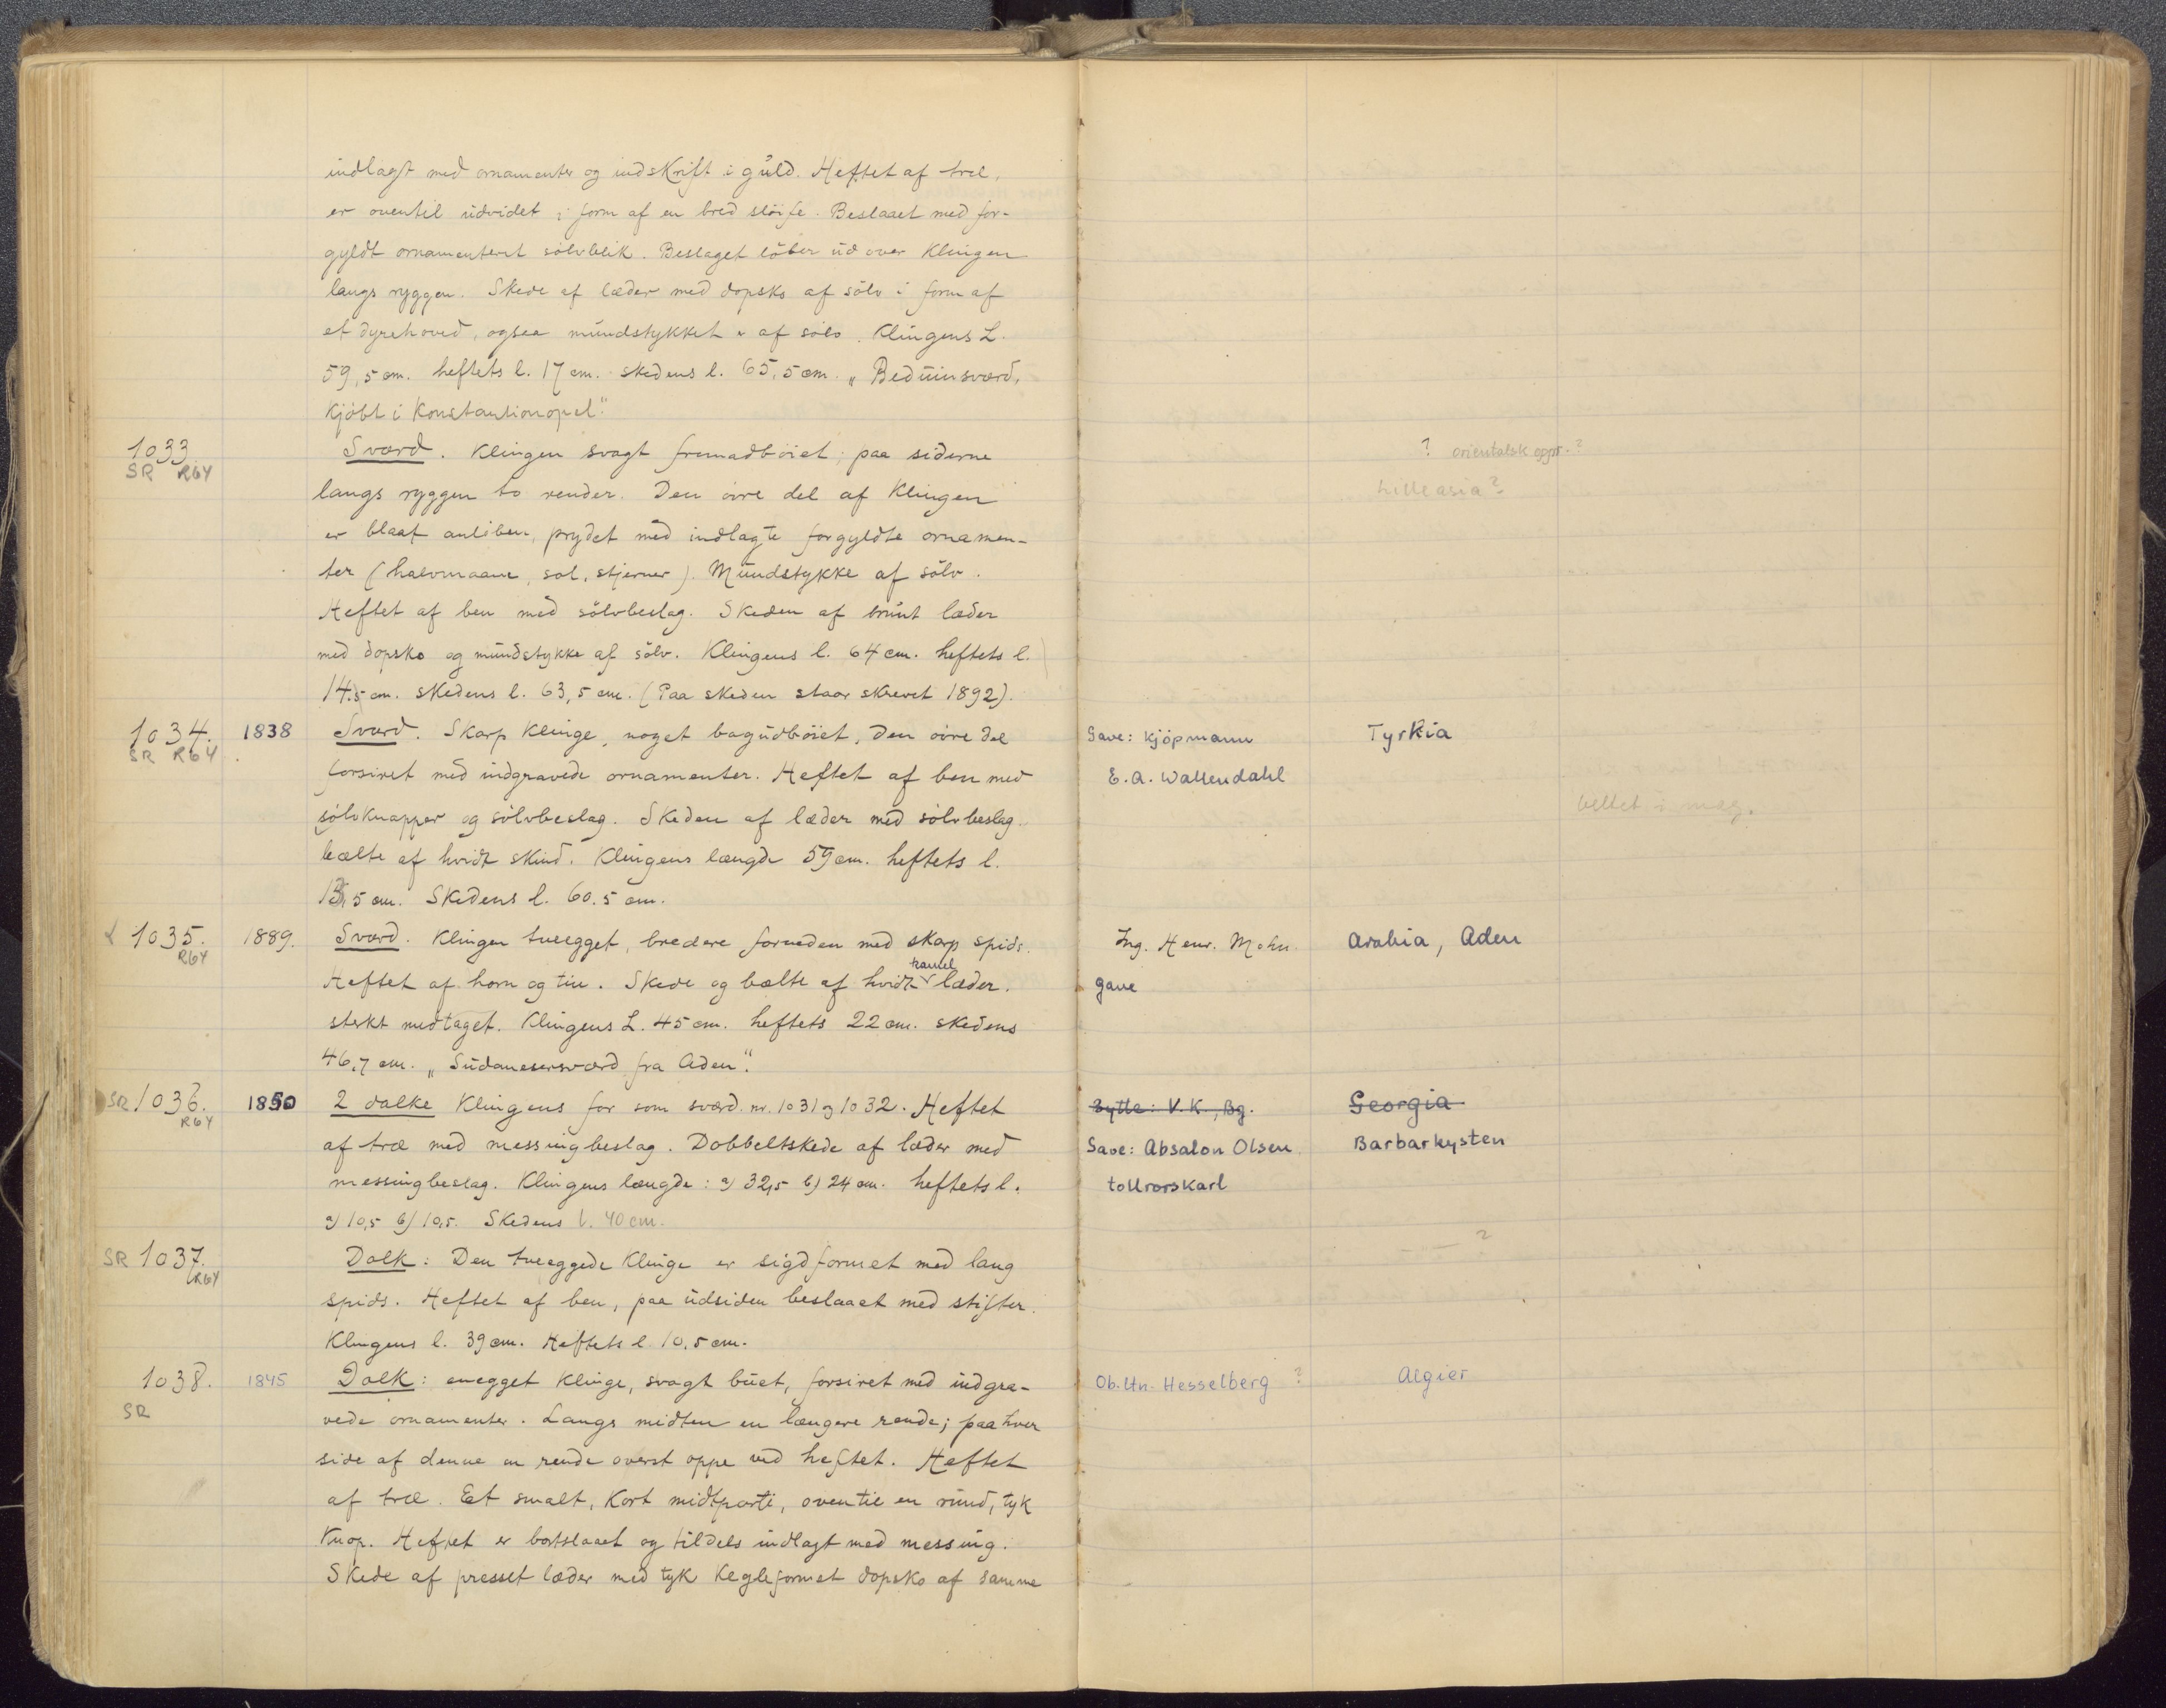 indlagt med ornamenter og indskrift i guld. Heftet af træ,
er oventil udvidet i form af en bred slöife. Beslaaet med for-
gyldt ornamenteret sölvblik. Beslaget löber ud over Klingen
langs ryggen. Skede af læder med dopsko af sölv i form af
et dyrehoved, ogsaa mundstykket er af sölv. Klingens L.
59,5 cm. heftets l. 17 cm. skedens l. 65,5 cm. „Beduinsværd,
Kjöbt i Konstantionopel".
1033 Sværd. Klingen svagt fremadböiet; paa siderne ? orientalsk oppr.?
SR R64 langs ryggen to render. Den övre del af Klingen Lilleasia?
er blaat anlöben, prydet med indlagte forgyldte ornamen-
ter (halvmaane, sol, stjerner). Mundstykke af sölv.
Heftet af ben med sölvbeslag. Skeden af brunt læder
med dopsko og mundstykke af sölv. Klingens l. 64 cm. heftets l.
14.5 cm. skedens l. 63,5 cm. (Paa skeden staar skrevet 1892).
1034. 1838 Sværd. Skarp Klinge, noget bagudböiet, Den övre del Gave: Kjöpmann Tyrkia
SR R64 forsiret med indgravede ornamenter. Heftet af ben med E.A. Wallendahl
sölvknapper og sölvbeslag. Skeden af læder med sölvbeslag. beltet i mag.
bælte af hvidt skind. Klingens længde 59 cm. heftets l.
5 cm. Skedens l. 60.5 cm.
1035. 1889. Sværd. Klingen tveegget, bredere forneden med skarp spids. Ing. Henr. Mohn. Arabia, Aden
R64 Heftet af horn og tin. Skede og bælte af hvidt kamel læder. gave
sterkt medtaget. Klingens L. 45 cm. heftets 22 cm. skedens
46,7 cm. „Sudanesersværd fra Aden".
SR 1036. 1850 2 dolke Klingens for som sværd. nr. 1031 og 1032. Heftet Bytte: V.K., Bg. Georgia
R64 af træ med messingbeslag. Dobbeltskede af læder med Gave: Absalon Olsen Barbarkysten
messingbeslag. Klingens længde: a) 32,5 b) 24 cm. heftets l. tollrorskarl
a) 10,5 b) 10,5. Skedens l. 40 cm.
SR 1037. Dolk: Den tveeggede Klinge er sigdformet med lang — ?
R64 spids. Heftet af ben, paa udsiden beslaaet med stifter.
Klingens l. 39 cm. Heftets l 10,5 cm.
1038. 1845 Dolk: enegget Klinge, svagt buet, forsiret med indgra- Ob.ltn. Hesselberg ? Algier
SR vede ornamenter. Langs midten en længere rende; paa hver
side af denne en rende överst oppe ved heftet. Heftet
af træ. Et smalt, Kort midtparti, oventil en rund, tyk
Knop. Heftet er bortslaaet og tildels indlagt med messing.
Skede af presset læder med tyk Kegleformet dopsko af samme